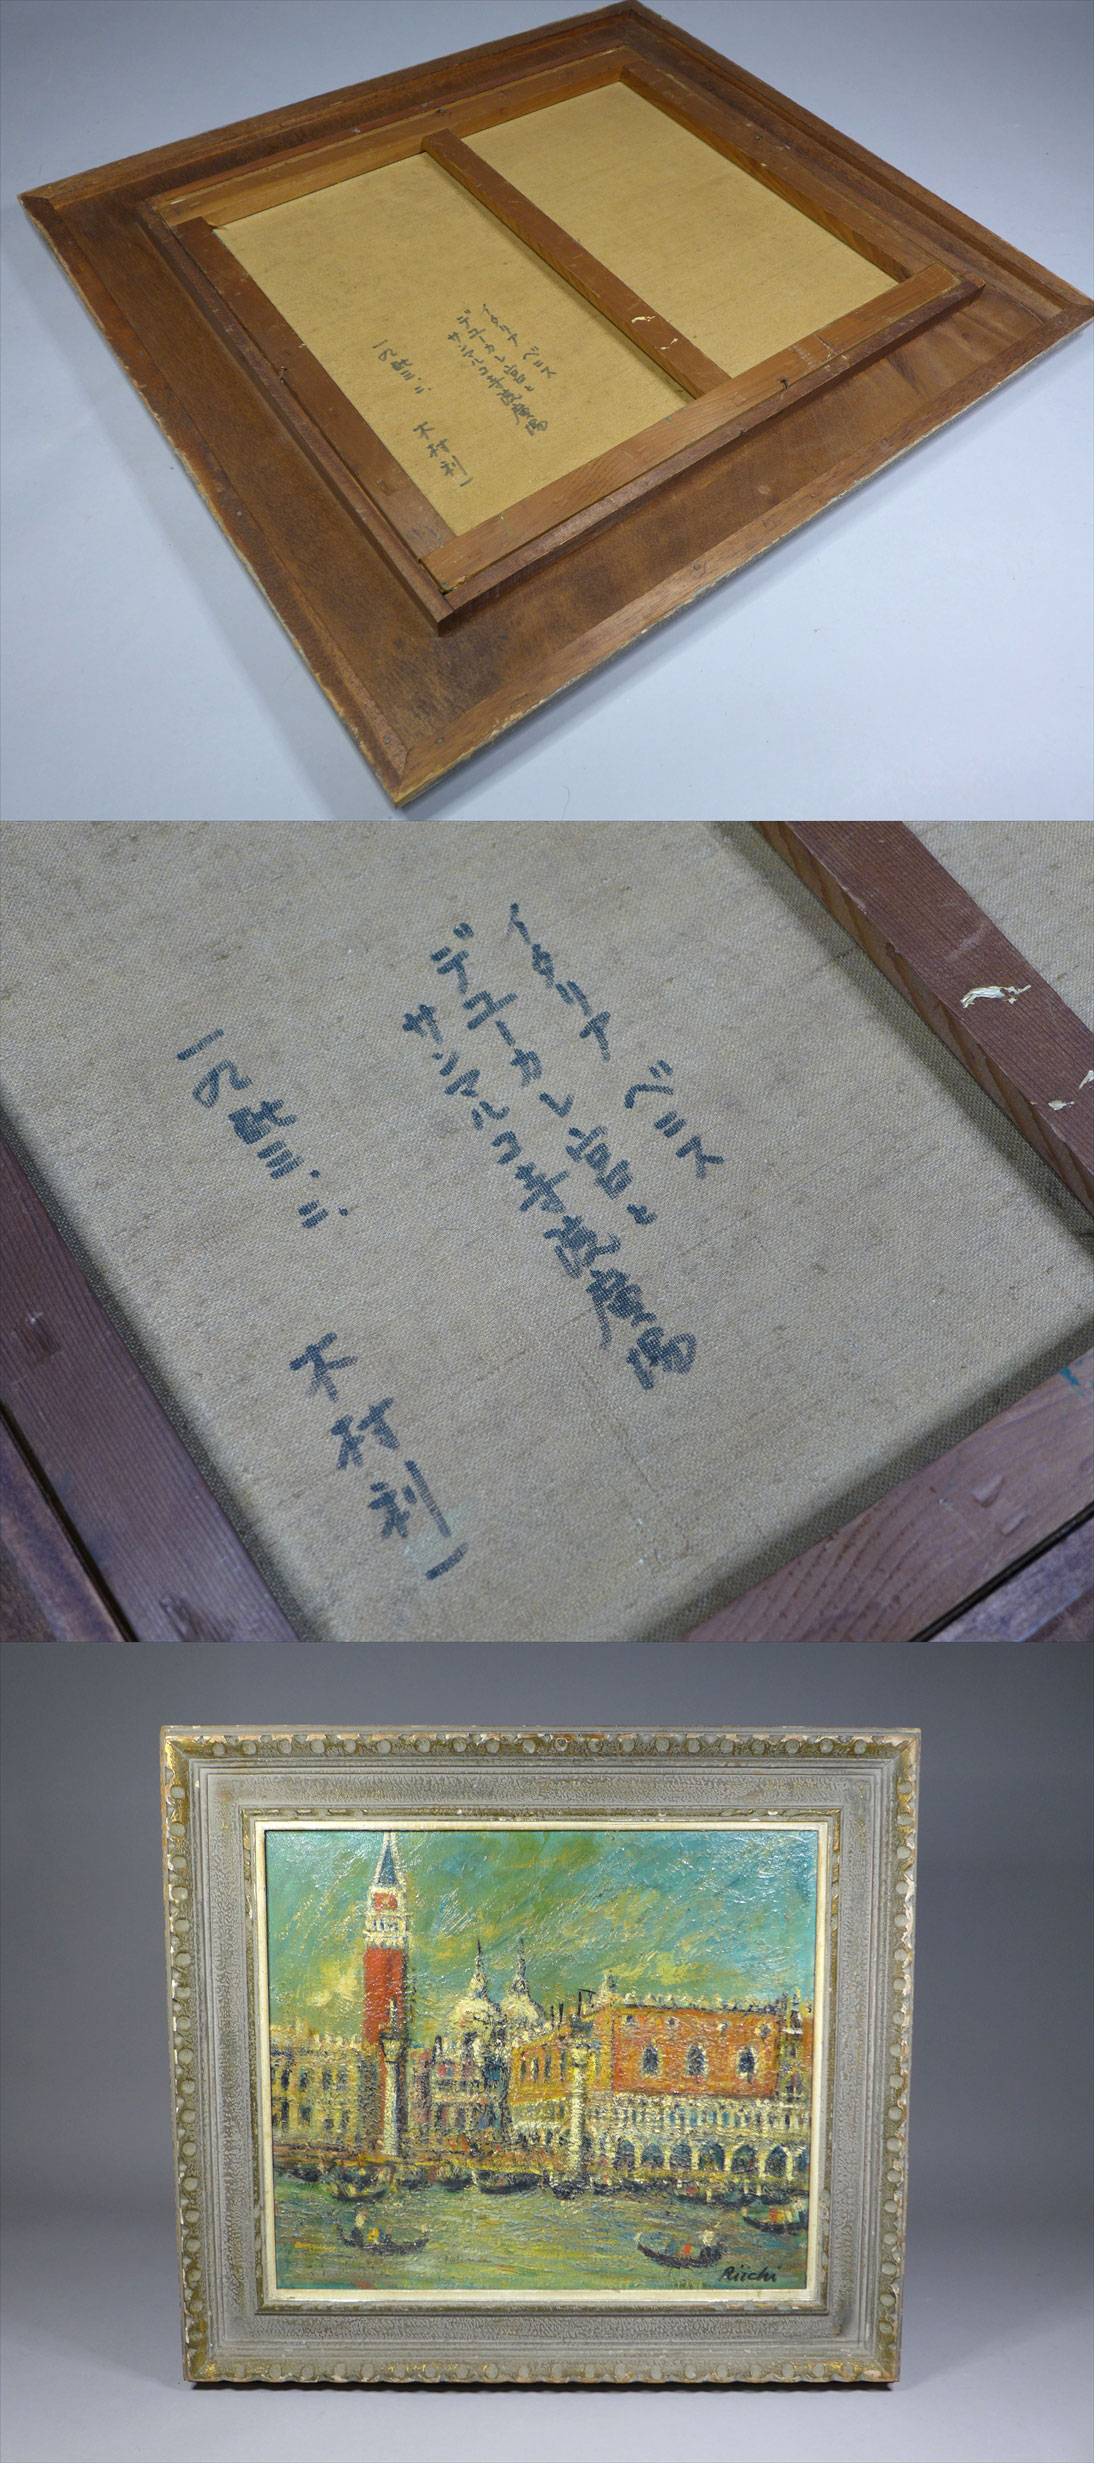 イタリア ベニス
デューカレ宮と
サンマルコ寺院廣場
一九七三.二.
木村利一
イタリア ベニス
デューカレ宮と
サンマルコ寺院廣場
一九七三.二.
木村利一
Riichi